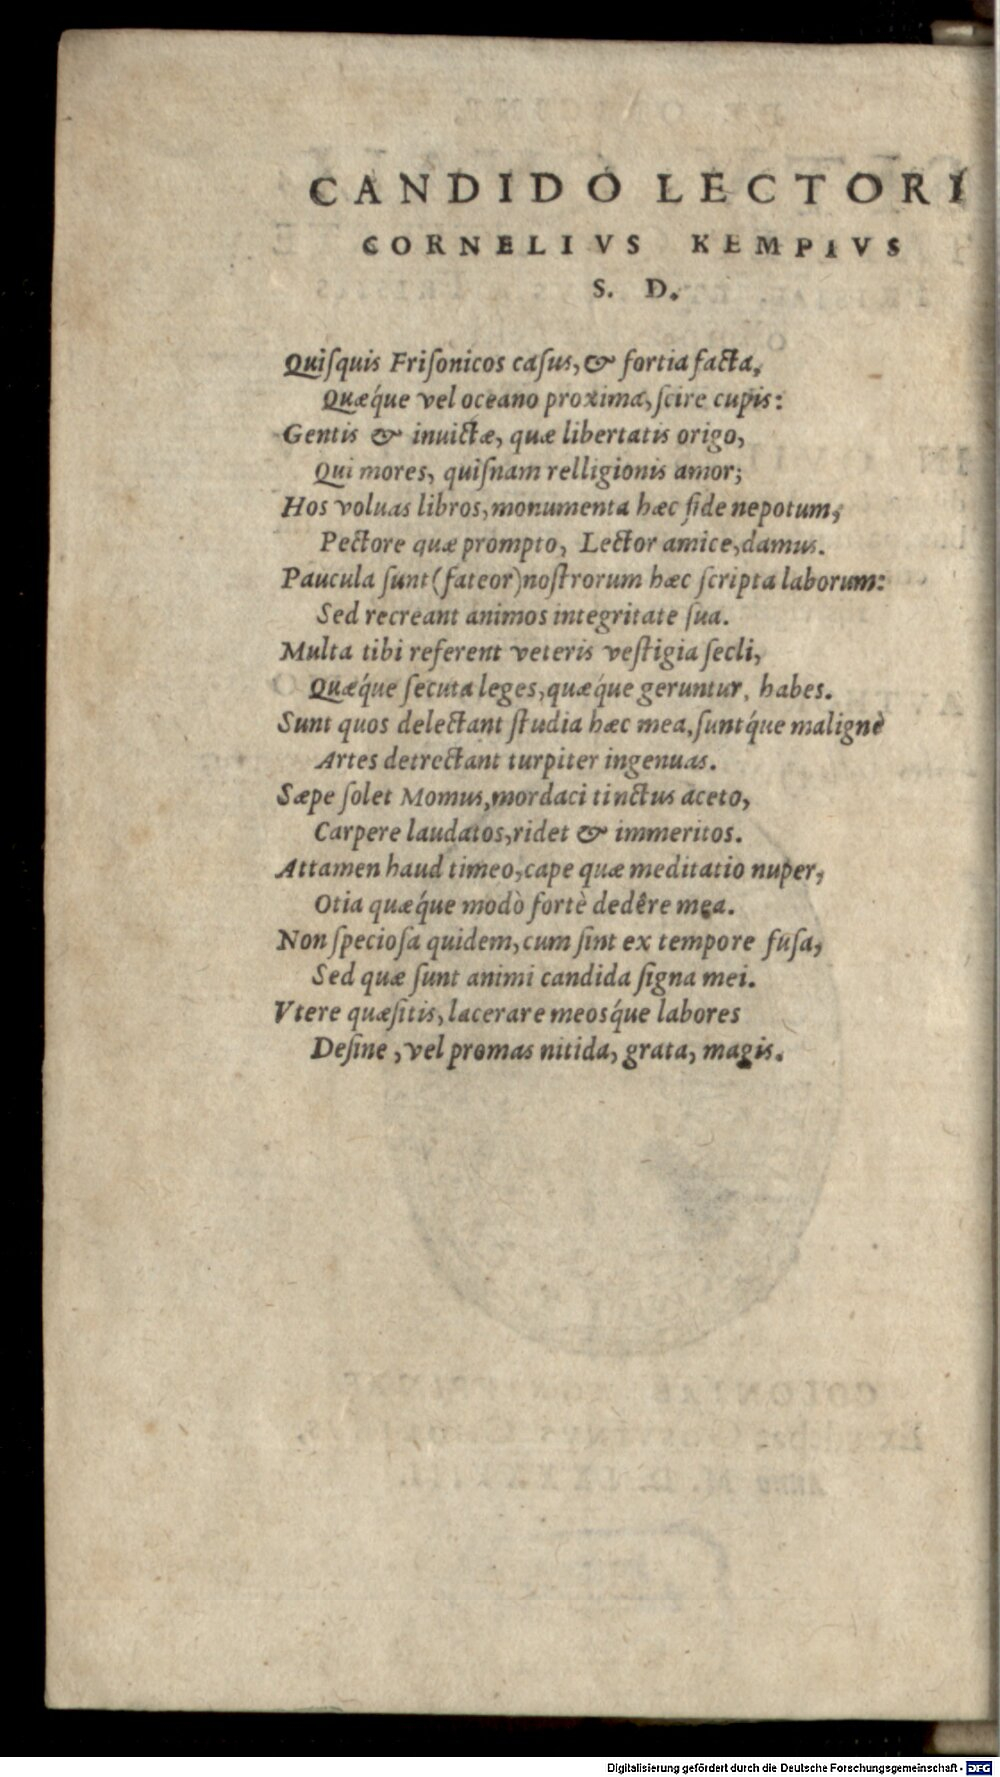 CANDIDO LECTORI
CORNELIVS KEMPIVS
S. D.
Quiſquis Friſonicos caſus, & fortia facta,
Quæq́ue vel oceano proxima, ſcire cupis:
Gentis & inuictæ, quæ libertatis origo,
Qui mores, quiſnam relligionis amor;
Hos voluas libros, monumenta hæc fide nepotum,
Pectore quæ prompto, Lector amice, damus.
Paucula ſunt (fateor) noſtrorum hæc ſcripta laborum:
Sed recreant animos integritate ſua.
Multa tibi referent veteris veſtigia ſecli,
Quæq́ue ſecuta leges, quæq́ue geruntur, habes.
Sunt quos delectant ſtudia hæc mea, ſuntq́ue malignè
Artes detrectant turpiter ingenuas.
Sæpe ſolet Momus, mordaci tinctus aceto,
Carpere laudatos, ridet & immeritos.
Attamen haud timeo, cape quæ meditatio nuper,
Otia quæq́ue modò fortè dedêre mea.
Non ſpecioſa quidem, cum ſint ex tempore fuſa,
Sed quæ ſunt animi candida ſigna mei.
Vtere quæſitis, lacerare meosq́ue labores
Deſine, vel promas nitida, grata, magis.
Digitalisierung gefördert durch die Deutsche Forschungsgemeinschaft - DFG